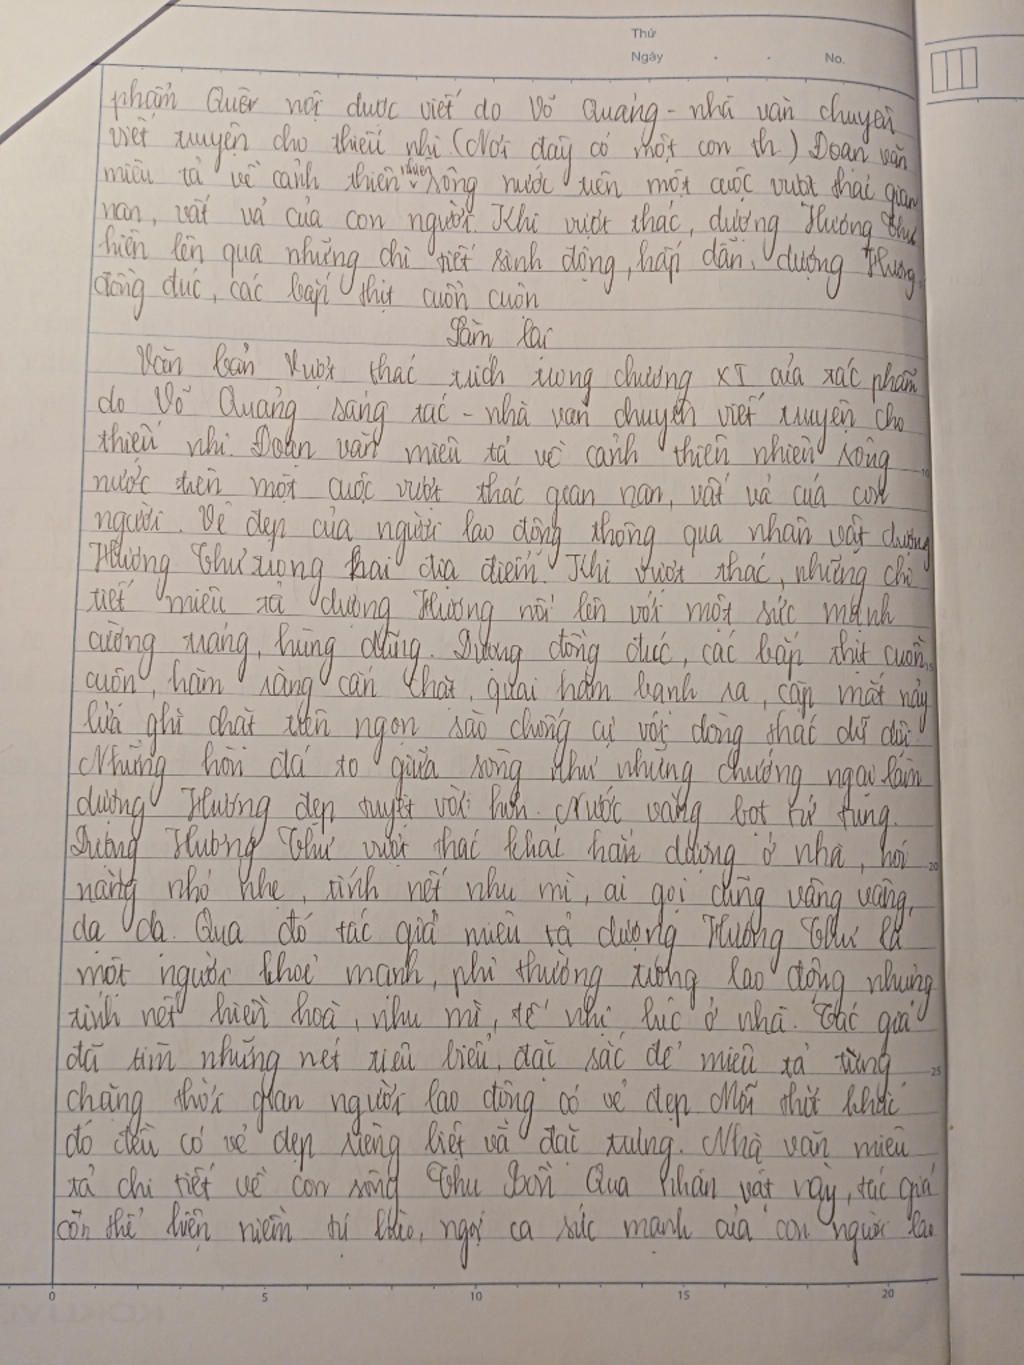 Thứ
Ngày . . No.
phẩm Quê nội được viết do Võ Quảng - nhà văn chuyên
viết truyện cho thiếu nhi (Nơi đây có một con th) Đoạn văn
miêu tả về cảnh thiên nhiên sông nước trên một cuộc vượt thác gian
nan, vất vả của con người. Khi vượt thác, dượng Hương Thư
hiện lên qua những chi tiết sinh động, hấp dẫn, dượng Hương
đồng đúc, các bắp thịt cuồn cuộn
Làm lại
Văn bản Vượt thác trích trong chương XI của tác phẩm
do Võ Quảng sáng tác - nhà văn chuyên viết truyện cho
thiếu nhi. Đoạn văn miêu tả về cảnh thiên nhiên sông
nước trên một cuộc vượt thác gian nan, vất vả của con
người. Vẻ đẹp của người lao động thông qua nhân vật dượng
Hương Thư trong hai địa điểm. Khi vượt thác, những chi
tiết miêu tả dượng Hương nổi lên với một sức mạnh
cường tráng, hùng dũng. Dượng đồng đúc, các bắp thịt cuồn
cuộn, hàm răng cắn chặt, quai hàm bạnh ra, cặp mắt nảy
lửa ghì chặt trên ngọn sào chống cự với dòng thác dữ dội.
Những hòn đá to giữa sông như những chướng ngại làm
dượng Hương đẹp tuyệt vời hơn. Nước văng bọt tứ tung.
Dượng Hương Thư vượt thác khác hẳn dượng ở nhà, nói
năng nhỏ nhẹ, tính nết nhu mì, ai gọi cũng vâng vâng,
dạ dạ. Qua đó tác giả miêu tả dượng Hương Thư là
một người khoẻ mạnh, phi thường trong lao động nhưng
tính nết hiền hoà, nhu mì, tế nhị lúc ở nhà. Tác giả
đã tìm những nét tiêu biểu, đặc sắc để miêu tả từng
chặng thời gian người lao động có vẻ đẹp Mỗi thời khắc
đó đều có vẻ đẹp riêng biệt và đặc trưng. Nhà văn miêu
tả chi tiết về con sông Thu Bồn Qua nhân vật vậy, tác giả
còn thể hiện niềm tự hào, ngợi ca sức mạnh của con người lao
0 5 10 15 20